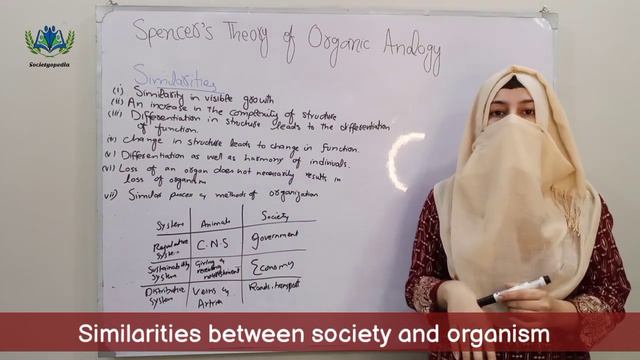 Societyopedia
Spencer's Theory of Organic Analogy
Similarities
(i) Similarity in visible growth
(ii) An increase in the complexity of structure
(iii) Differentiation in structure leads to the differentiation
of function.
(iv) Change in structure leads to change in function.
(v) Differentiation as well as harmony of
(vi) Loss of an organ does not necessarily results in
loss of organism
vii) Similar process & methods of organization
System Animals Society
Regulative System C.N.S Government
System Giving & receiving Economy
Distributive System Veins & Roads, transport
Similarities between society and organism